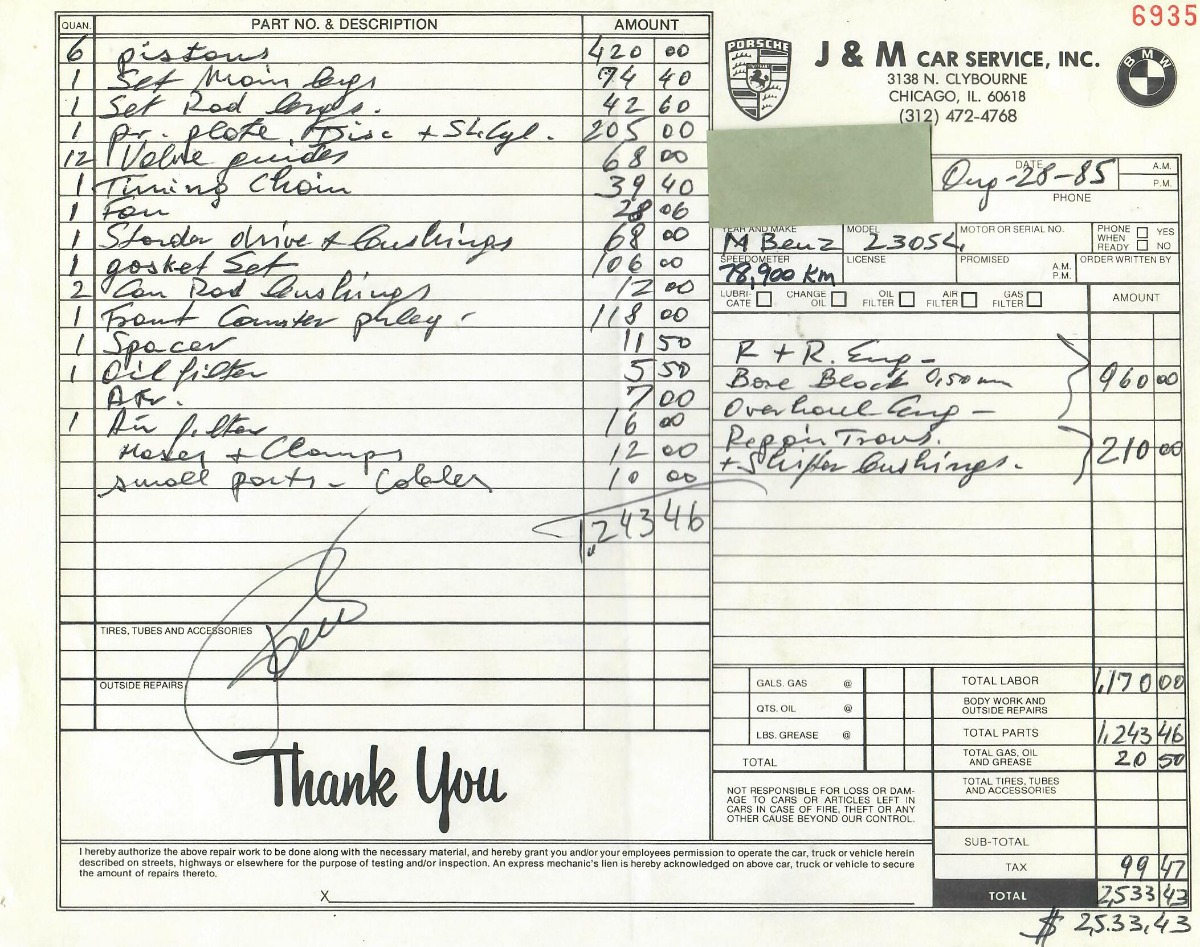 6935
QUAN. PART NO. & DESCRIPTION AMOUNT
6 pistons 420 00
1 Set Main brgs 74 40
1 Set Rod brgs. 42 60
1 pr. plate, Disc + Sl.Cyl. 205 00
12 Valve guides 68 00
1 Timing Chain 39 40
1 Fan 28 06
1 drive + bushings 68 00
1 gasket Set 106 00
2 Con Rod bushings 12 00
1 Front Counter puley - 118 00
1 Spacer 11 50
1 Oil filter 5 50
ATF. 7 00
1 Air filter 16 00
Hoses + Clamps 12 00
small parts - 10 00
1,243 46
TIRES, TUBES AND ACCESSORIES
OUTSIDE REPAIRS
Thank You
PORSCHE
J & M CAR SERVICE, INC.
3138 N. CLYBOURNE
CHICAGO, IL. 60618
(312) 472-4768
BMW
DATE Aug-28-85 A.M.
P.M.
PHONE
YEAR AND MAKE M Benz MODEL 230SL MOTOR OR SERIAL NO. PHONE WHEN READY YES NO
SPEEDOMETER 78,900 Km LICENSE PROMISED A.M. P.M. ORDER WRITTEN BY
LUBRI-CATE CHANGE OIL OIL FILTER AIR FILTER GAS FILTER AMOUNT
R + R. Eng -
Bore Block 0,50 mm 960 00
Overhaul Eng -
Repair Trans. 210 00
+ Shifter bushings.
GALS. GAS @ TOTAL LABOR 1,170 00
QTS. OIL @ BODY WORK AND OUTSIDE REPAIRS
LBS. GREASE @ TOTAL PARTS 1,243 46
TOTAL TOTAL GAS, OIL AND GREASE 20 50
TOTAL TIRES, TUBES AND ACCESSORIES
NOT RESPONSIBLE FOR LOSS OR DAM-
AGE TO CARS OR ARTICLES LEFT IN
CARS IN CASE OF FIRE, THEFT OR ANY
OTHER CAUSE BEYOND OUR CONTROL.
SUB-TOTAL
TAX 99 47
TOTAL 2,533 43
$ 2533,43
I hereby authorize the above repair work to be done along with the necessary material, and hereby grant you and/or your employees permission to operate the car, truck or vehicle herein
described on streets, highways or elsewhere for the purpose of testing and/or inspection. An express mechanic's lien is hereby acknowledged on above car, truck or vehicle to secure
the amount of repairs thereto.
X